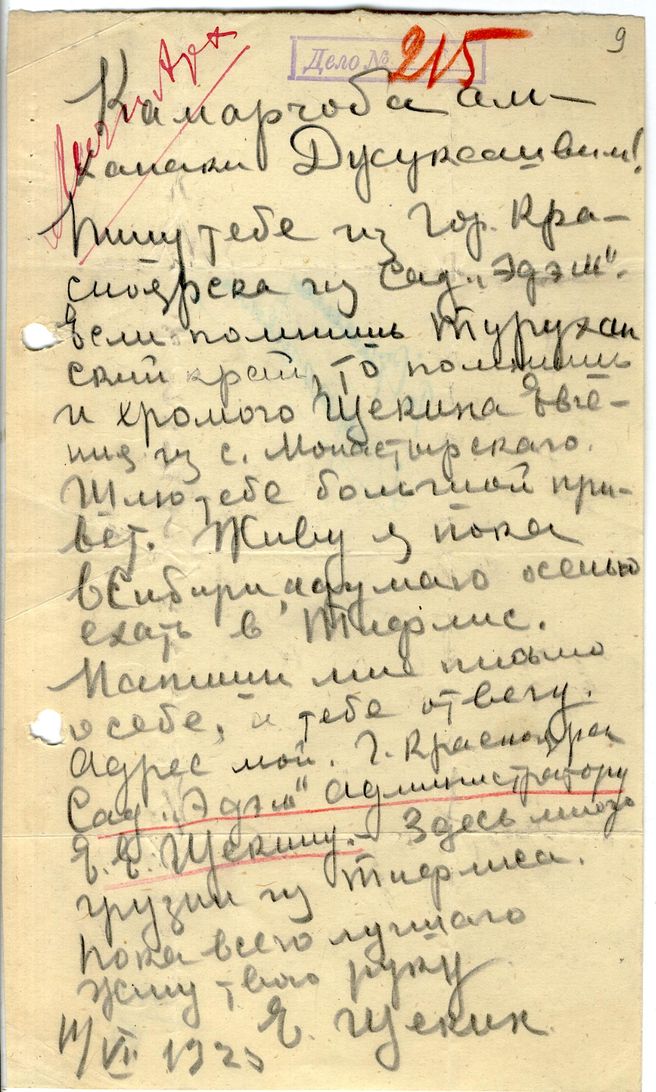 9
Дело № 215
Камарчоба ам-
ханаки Дусуксашвим!
Пишу тебе из Гор. Кра-
сноярска из Сад. „Эдэм".
Если помнишь Турухан
ский край, то помнишь
и хромого Щекина Евге-
ния из с. Монастырскаго.
Шлю тебе большой при-
вет. Живу я пока
в Сибири, а думаю осенью
ехать в Тифлис.
Напиши мне письмо
о себе, я тебе отвечу.
Адрес мой. Г. Красноярск
Сад „Эдэм" администратору
Е. Е. Щекину. – Здесь много
грузин из Тифлиса.
Пока всего лучшаго
Жму твою руку
Е. Щекин.
VI 192